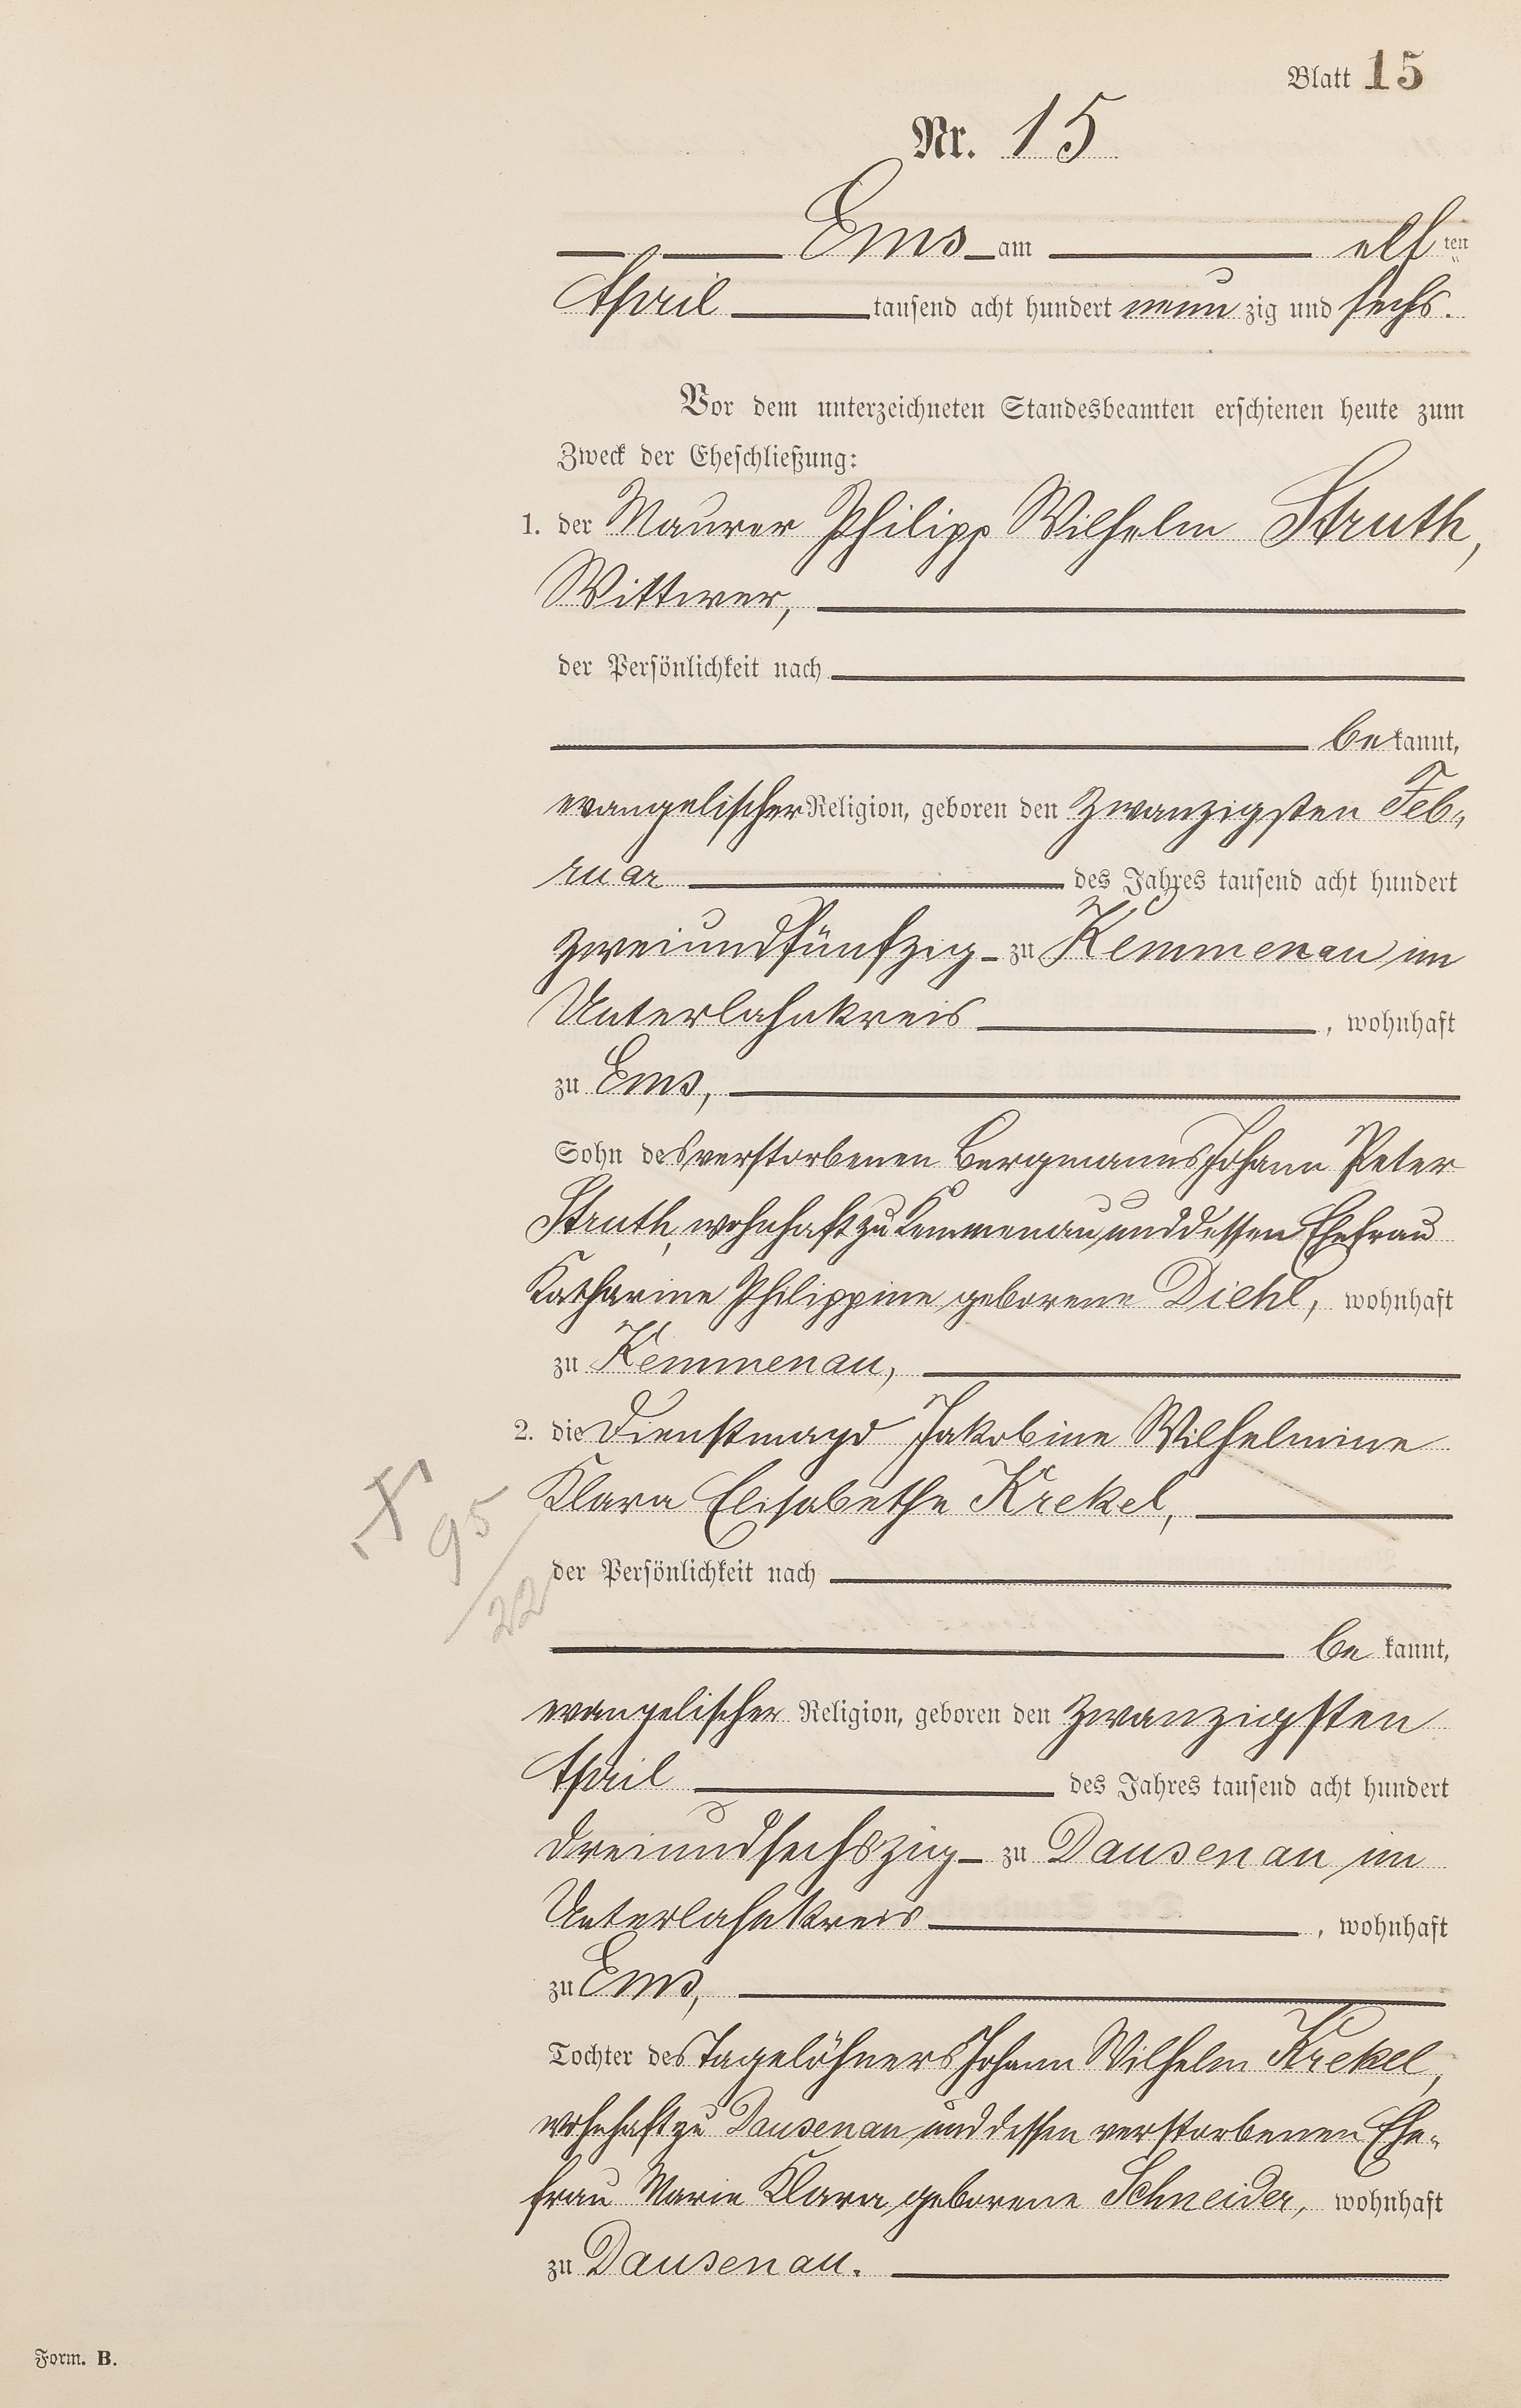 Blatt 15
Nr. 15
Ems am elften
April tausend acht hundert neunzig und sechs.
Vor dem unterzeichneten Standesbeamten erschienen heute zum
Zweck der Eheschließung:
1. der Maurer Philipp Wilhelm Struth,
Wittwer,
der Persönlichkeit nach
bekannt,
evangelischer Religion, geboren den zwanzigsten Feb-
ruar des Jahres tausend acht hundert
zweiundfünfzig zu Kemmenau im
Unterlahnkreis, wohnhaft
zu Ems,
Sohn des verstorbenen Bergmanns Johann Peter
Struth, wohnhaft zu Kemmenau, und dessen Ehefrau
Katharine Philippine geborene Diehl, wohnhaft
zu Kemmenau,
2. die Dienstmagd Jakobine Wilhelmine
Klara Elisabethe Krekel,
95/22
der Persönlichkeit nach
bekannt,
evangelischer Religion, geboren den zwanzigsten
April des Jahres tausend acht hundert
dreiundsechszig zu Dausenau im
Unterlahnkreis, wohnhaft
zu Ems,
Tochter des Tagelöhners Johann Wilhelm Krekel,
wohnhaft zu Dausenau und dessen verstorbenen Ehe-
frau Marie Klara geborene Schneider, wohnhaft
zu Dausenau.
Form. B.